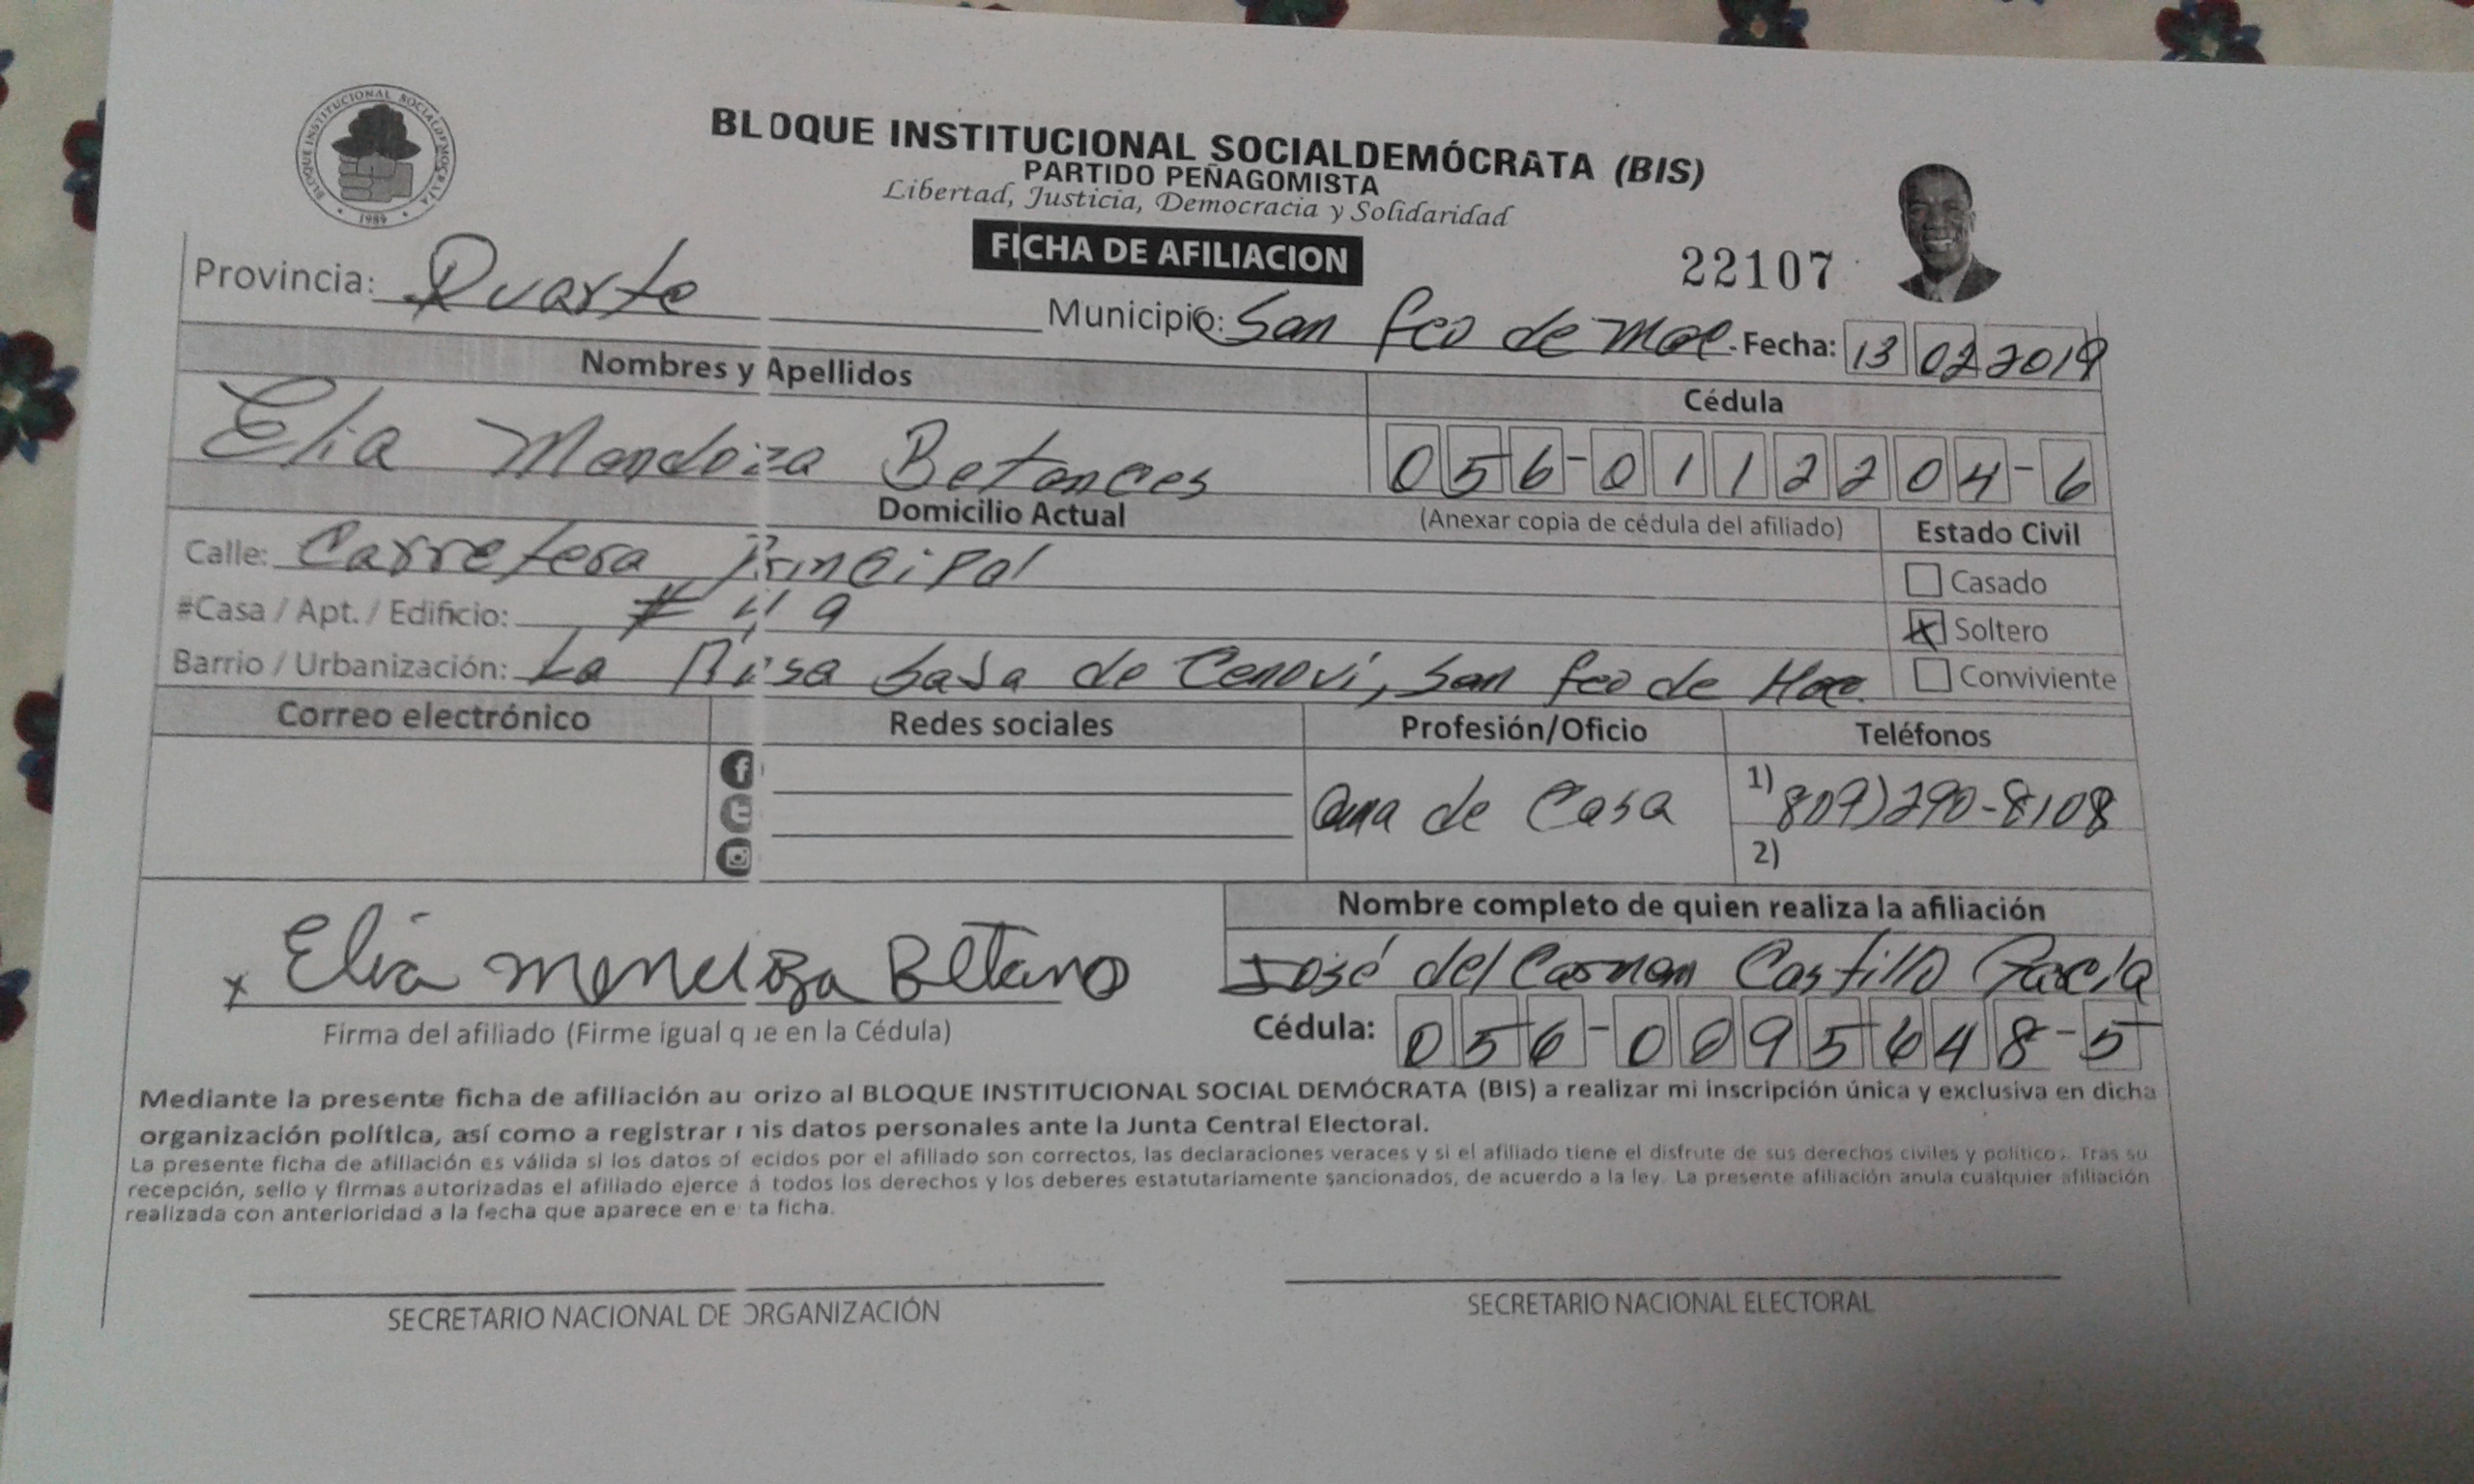 BLOQUE INSTITUCIONAL SOCIALDEMÓCRATA
1989
BLOQUE INSTITUCIONAL SOCIALDEMÓCRATA (BIS)
PARTIDO PEÑAGOMISTA
Libertad, Justicia, Democracia y Solidaridad
FICHA DE AFILIACION
22107
Provincia: Duarte
Municipio: San fco de Mac. Fecha: 13 02 2019
Nombres y Apellidos
Cédula
Elia Mendoza Betances
056-0112204-6
Domicilio Actual
(Anexar copia de cédula del afiliado)
Estado Civil
Calle: Carretera Principal
Casado
#Casa / Apt. / Edificio: # 119
X Soltero
Barrio / Urbanización: La de Cenovi, San fco de Mac.
Conviviente
Correo electrónico
Redes sociales
Profesión/Oficio
Teléfonos
Ama de Casa
1) 809)290-8108
2)
Nombre completo de quien realiza la afiliación
x Elia Mendoza Betanc
José del Carmen Castillo García
Firma del afiliado (Firme igual q ie en la Cédula)
Cédula: 056-0095648-5
Mediante la presente ficha de afiliación au orizo al BLOQUE INSTITUCIONAL SOCIAL DEMÓCRATA (BIS) a realizar mi inscripción única y exclusiva en dicha
organización política, así como a registrar mis datos personales ante la Junta Central Electoral.
La presente ficha de afiliación es válida si los datos of ecidos por el afiliado son correctos, las declaraciones veraces y si el afiliado tiene el disfrute de sus derechos civiles y políticos. Tras su
recepción, sello y firmas autorizadas el afiliado ejerce á todos los derechos y los deberes estatutariamente sancionados, de acuerdo a la ley. La presente afiliación anula cualquier afiliación
realizada con anterioridad a la fecha que aparece en e ta ficha.
SECRETARIO NACIONAL DE ORGANIZACIÓN
SECRETARIO NACIONAL ELECTORAL